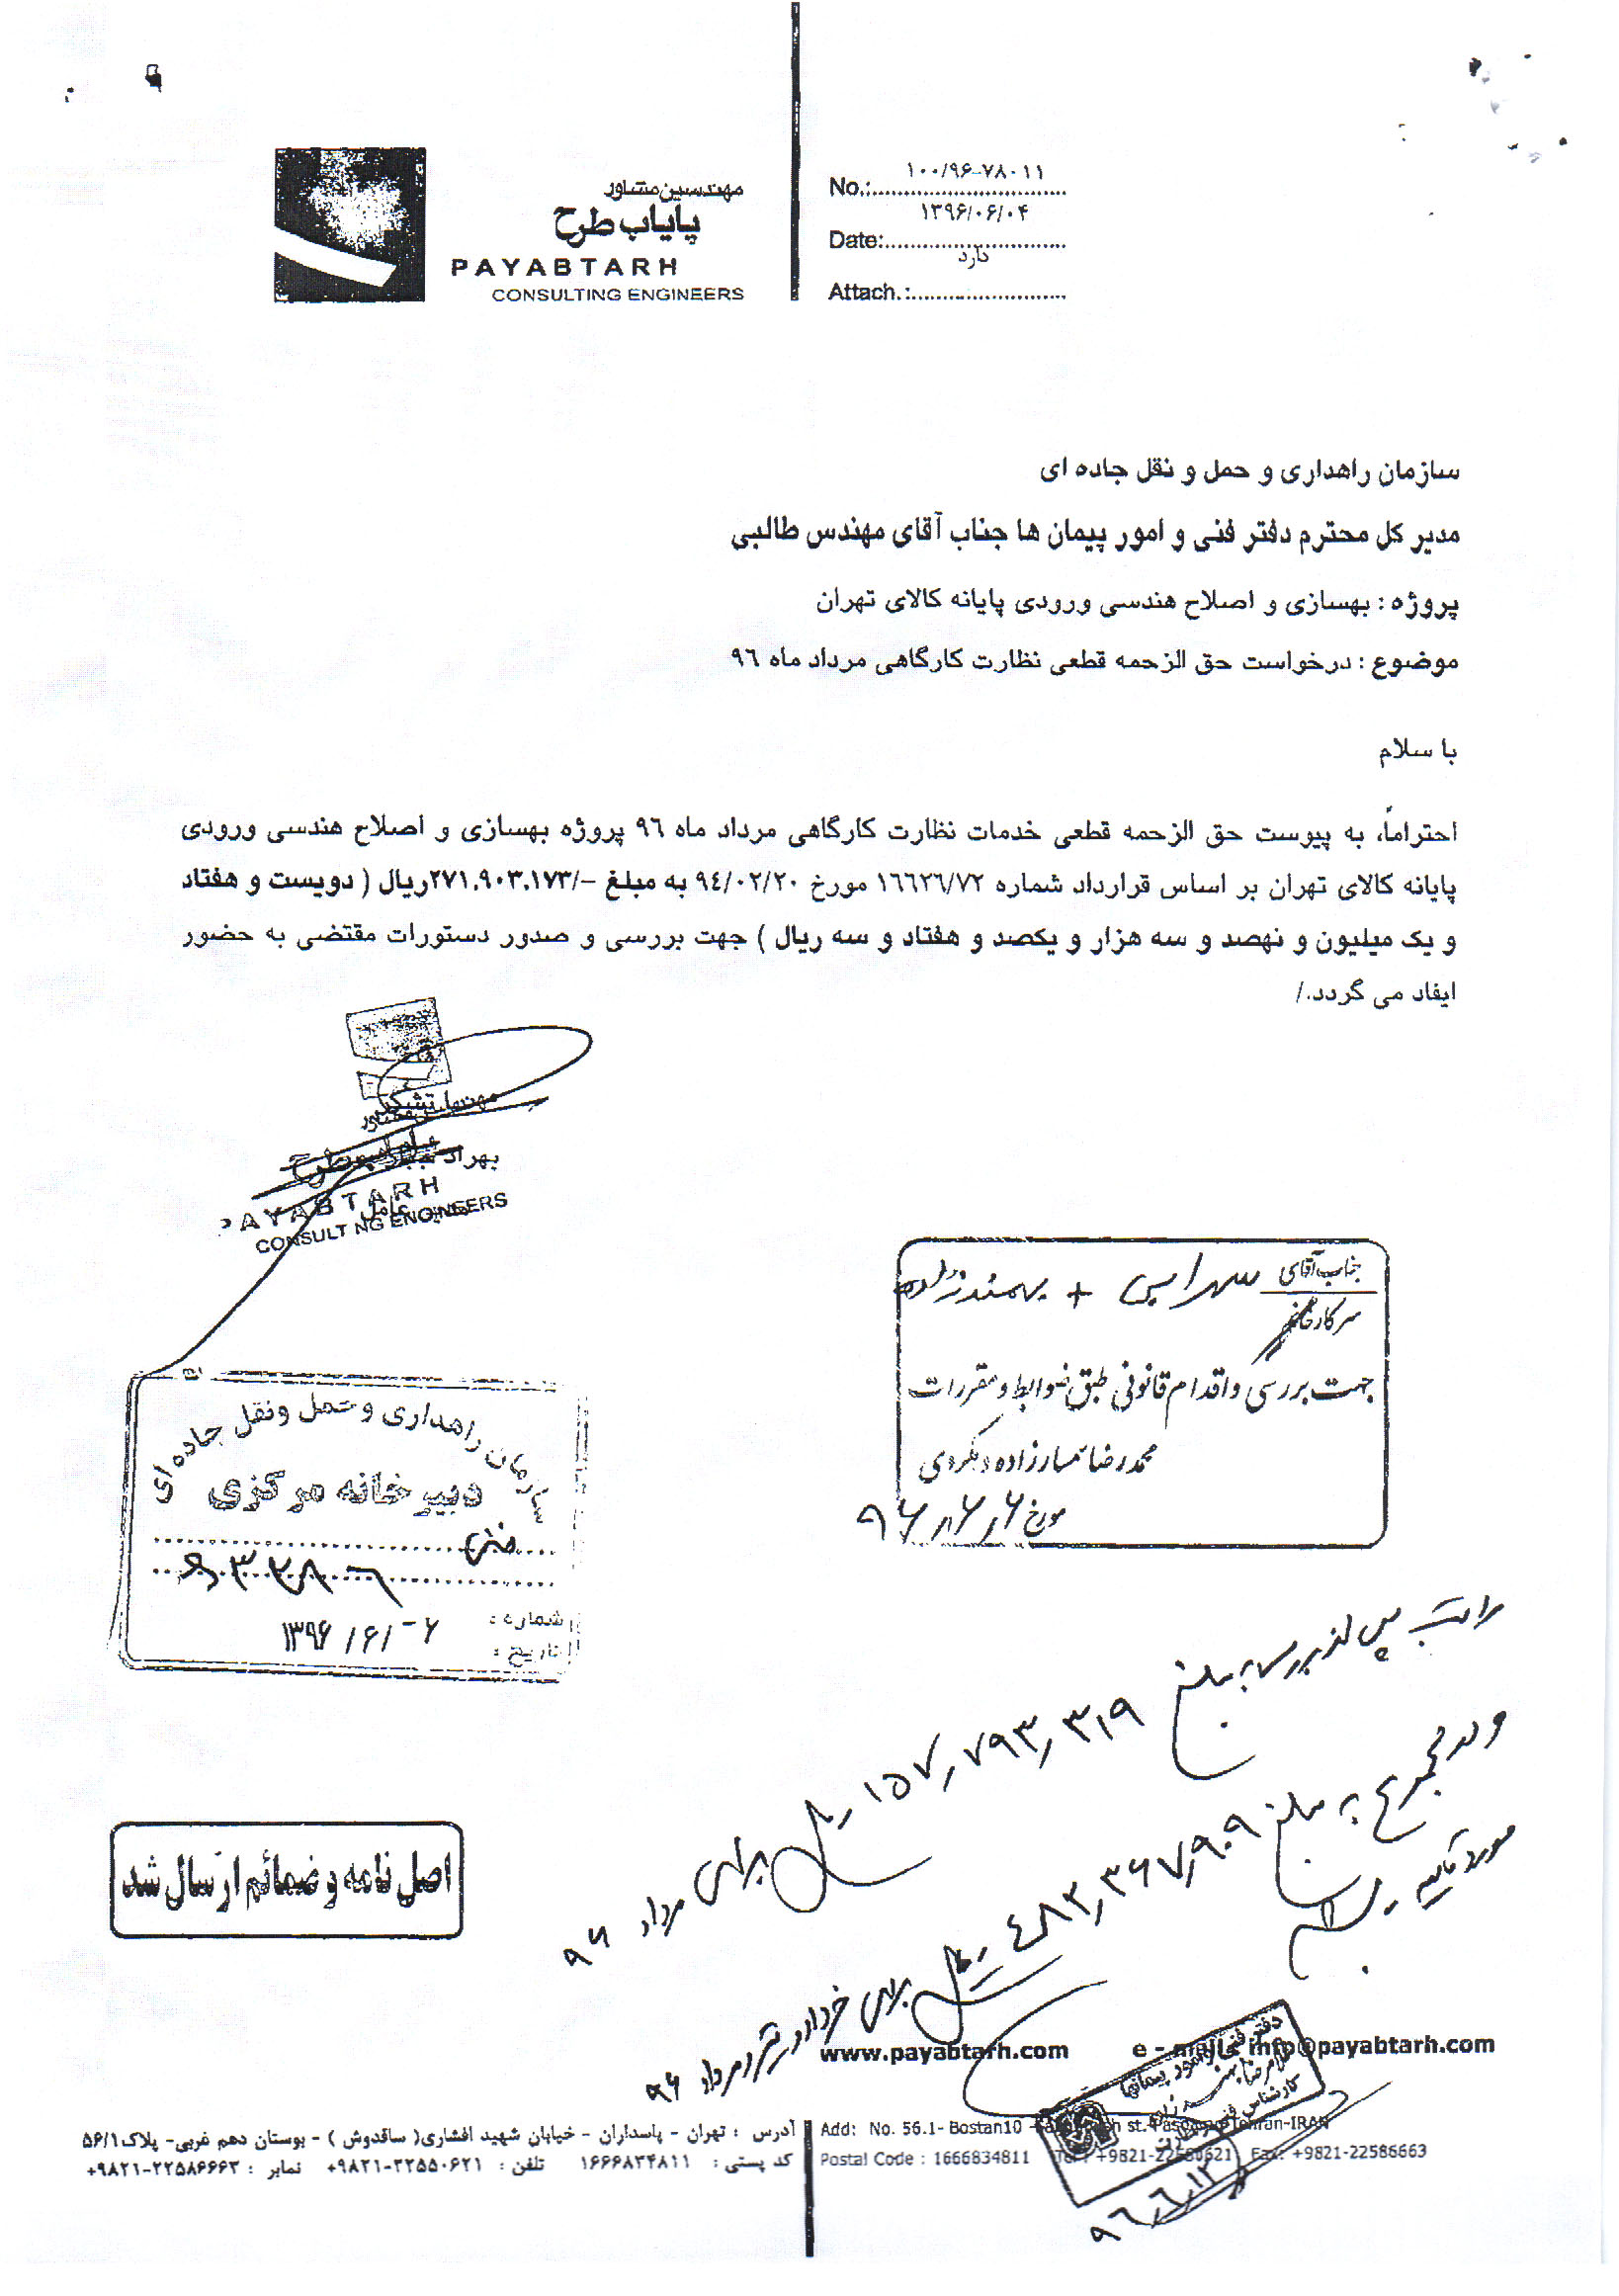 مهندسین مشاور
پایاب طرح
PAYABTARH
CONSULTING ENGINEERS
No.:.............................
۱۰۰/۹۶-۷۸۰۱۱
Date:...........................
۱۳۹۶/۰۶/۰۴
Attach.:.......................
دارد
سازمان راهداری و حمل و نقل جاده ای
مدیر کل محترم دفتر فنی و امور پیمان ها جناب آقای مهندس طالبی
پروژه : بهسازی و اصلاح هندسی ورودی پایانه کالای تهران
موضوع : درخواست حق الزحمه قطعی نظارت کارگاهی مرداد ماه ۹٦
با سلام
احتراماً، به پیوست حق الزحمه قطعی خدمات نظارت کارگاهی مرداد ماه ۹٦ پروژه بهسازی و اصلاح هندسی ورودی
پایانه کالای تهران بر اساس قرارداد شماره ۱٦٦۲٦/۷۲ مورخ ۹٤/۰۲/۲۰ به مبلغ -/۲۷۱،۹۰۳،۱۷۳ریال ( دویست و هفتاد
و یک میلیون و نهصد و سه هزار و یکصد و هفتاد و سه ریال ) جهت بررسی و صدور دستورات مقتضی به حضور
ایفاد می گردد./
مهندسین مشاور
PAYABTARH
CONSULT NG ENGINEERS
جناب آقای سهرابی + بهمندزاده
سرکار خانم
جهت بررسی و اقدام قانونی طبق ضوابط و مقررات
محمدرضا
مورخ ۹۶/۶/۶
سازمان راهداری و حمل و نقل جاده ای
دبیرخانه مرکزی
فنی
شماره :
تاریخ : ۱۳۹۶/۶/۰۶
مراتب پس از بررسی به مبلغ ۱۵۷,۷۹۳,۳۱۹ ریال برای مرداد ۹۶
و در مجموع به مبلغ ۴۸۲,۳۶۷,۹۰۹ ریال برای خرداد و تیر و مرداد ۹۶
مورد تایید
اصل نامه و ضمائم ارسال شد
دفتر فنی و امور پیمانها
۹۶,۶,۱۲
www.payabtarh.com e - mail: info@payabtarh.com
آدرس : تهران - پاسداران - خیابان شهید افشاری( ساقدوش ) - بوستان دهم غربی- پلاک۵۶/۱
کد پستی : ۱۶۶۶۸۳۴۸۱۱ تلفن : ۲۲۵۵۰۶۲۱-۹۸۲۱+ نمابر : ۲۲۵۸۶۶۶۳-۹۸۲۱+
Add: No. 56.1- Bostan10 st. Pasdaran-Tehran-IRAN
Postal Code : 1666834811 Tel : +9821-22550621 Fax: +9821-22586663